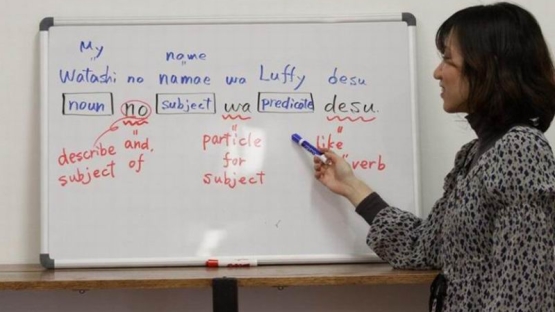 My name
Watashi no namae wa Luffy desu
noun no subject wa predicate desu.
describe and, particle like
subject of for verb
subject